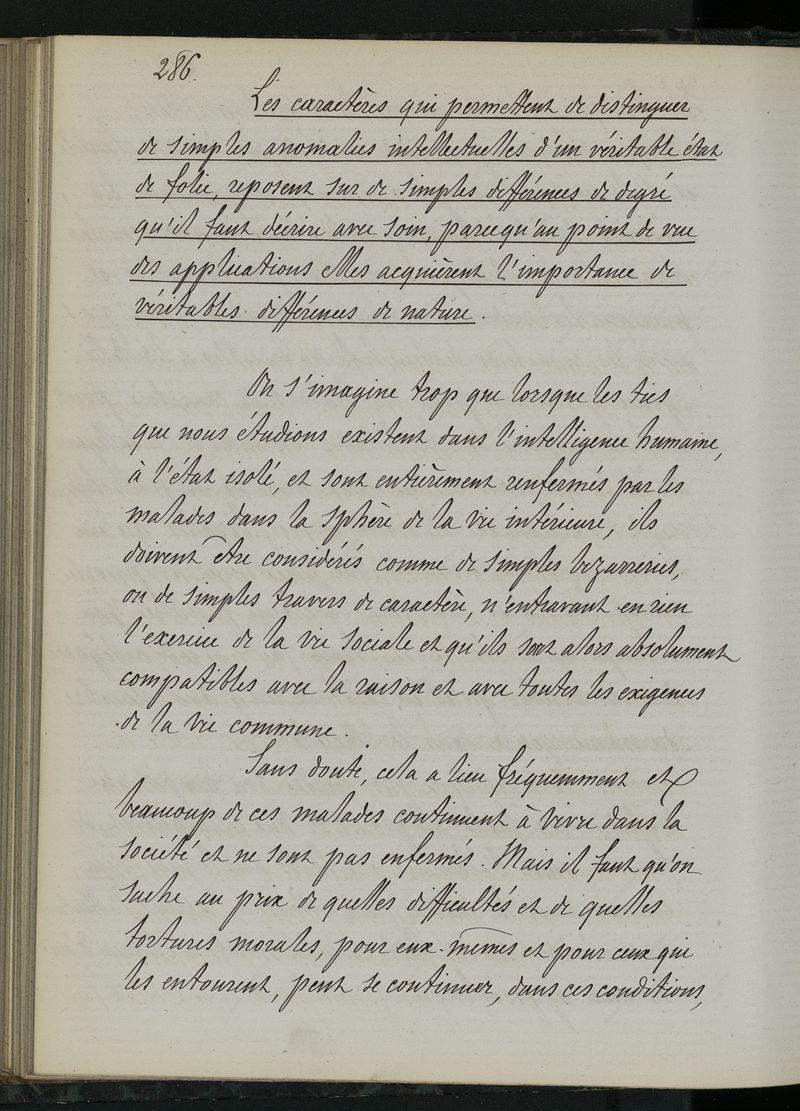 286.
Les caractères qui permettent de distinguer
de simples anomalies intellectuelles d'un véritable état
de folie, reposent sur de simples différences de degré
qu'il faut décrire avec soin, parcequ'au point de vue
des applications elles acquièrent l'importance de
véritables différences de nature.
On s'imagine trop que lorsque les tics
que nous étudions existent dans l'intelligence humaine,
à l'état isolé, et sont entièrement renfermés par les
malades dans la sphère de la vie intérieure, ils
doivent être considérés comme de simples bizarreries,
ou de simples travers de caractère, n'entravant en rien
l'exercice de la vie sociale et qu'ils sont alors absolument
compatibles avec la raison et avec toutes les exigences
de la vie commune.
Sans doute, cela a lieu fréquemment et
beaucoup de ces malades continuent à vivre dans la
société et ne sont pas enfermés. Mais il faut qu'on
sache au prix de quelles difficultés et de quelles
tortures morales, pour eux-mêmes et pour ceux qui
les entourent, peut se continuer, dans ces conditions,